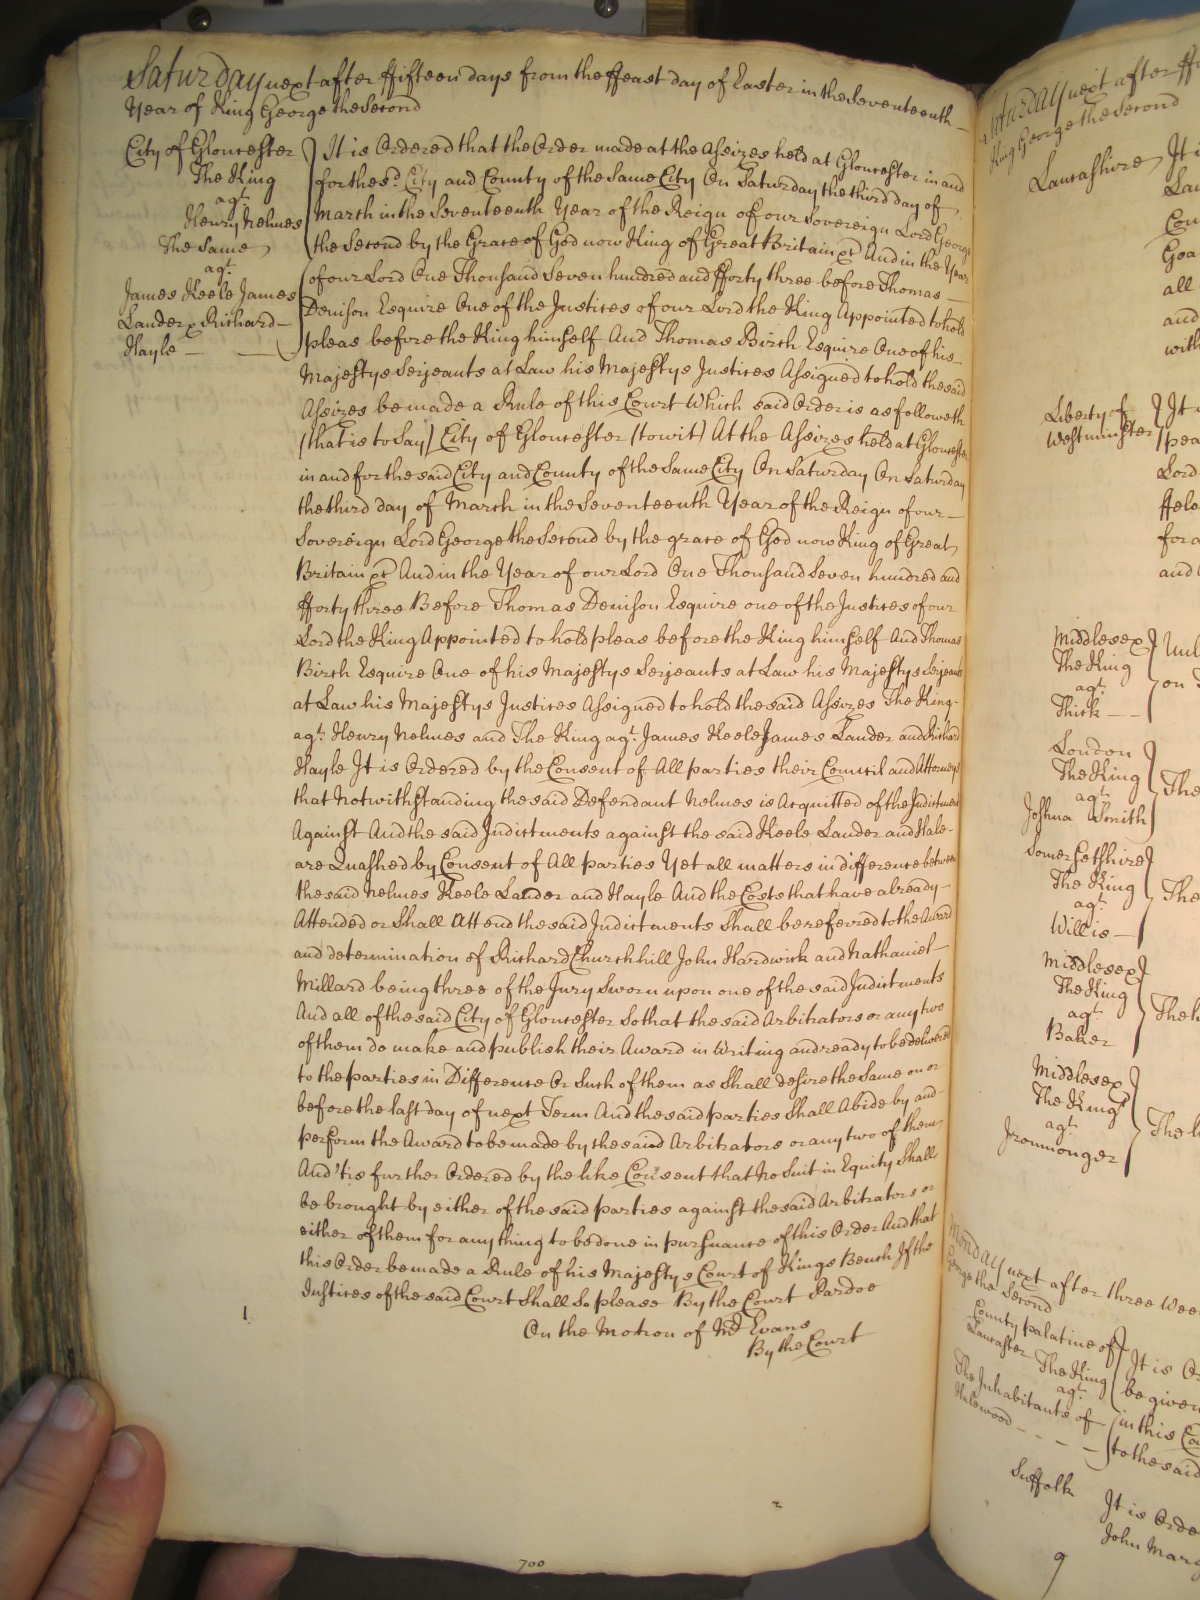 Saturday next after ffifteen days from the ffeast day of Easter in the Seventeenth
Year of King George the Second
City of Gloucester
The King
agt.
Henry Nelmes
The Same
agt.
James Keele James
Lander & Richard
Hayle
It is Ordered that the Order made at the Assizes held at Gloucester in and
for the sd. City and County of the Same City On Saturday the third day of
March in the Seventeenth Year of the Reign of our Sovereign Lord George
the Second by the Grace of God now King of Great Britain &c And in the Year
of our Lord One Thousand Seven hundred and fforty three before Thomas
Denison Esquire One of the Justices of our Lord the King Appointed to hold
pleas before the King himself And Thomas Birch Esquire One of his
Majestys Serjeants at Law his Majestys Justices Assigned to hold the said
Assizes be made a Rule of this Court Which said Order is as followeth
(that is to Say) City of Gloucester (to wit) At the Assizes held at Gloucester
in and for the said City and County of the Same City On Saturday On Saturday
the third day of March in the Seventeenth Year of the Reign of our
Sovereign Lord George the Second by the grace of God now King of Great
Britain &c And in the Year of our Lord One Thousand Seven hundred and
fforty three Before Thomas Denison Esquire one of the Justices of our
Lord the King Appointed to hold pleas before the King himself And Thomas
Birch Esquire One of his Majestys Serjeants at Law his Majestys Serjeants
at Law his Majestys Justices Assigned to hold the said Assizes The King
agt. Henry Nelmes and The King agt. James Keele James Lander and Richard
Hayle It is Ordered by the Consent of All parties their Councill and Attorneys
that Notwithstanding the said Defendant Nelmes is Acquitted of the Indictment
Against And the said Indictments against the said Keele Lander and Hale
are Quashed by Consent of All parties Yet all matters in difference between
the said Nelmes Keele Lander and Hayle And the Costs that have already
Attended or Shall Attend the said Indictments Shall be referred to the Award
and determination of Richard Churchhill John Hardwick and Nathaniel
Millard being three of the Jury Sworn upon one of the said Indictments
And all of the said City of Gloucester So that the said Arbitrators or any two
of them do make and publish their Award in Writing and ready to be delivered
to the parties in Difference Or Such of them as Shall desire the Same on or
before the last day of next Term And the said parties Shall Abide by and
perform the Award to be made by the said Arbitrators or any two of them
And 'tis further Ordered by the like Consent that No Suit in Equity Shall
be brought by either of the said parties against the said Arbitrators or
either of them for any thing to be done in pursuance of this Order And that
this Order be made a Rule of his Majestys Court of Kings Bench If the
Justices of the said Court Shall So please By the Court Pardoe
On the Motion of Mr. Evans
By the Court
1
700
Saturday next after ff
King George the Second
Lancashire
It i
Lan
Cou
Goa
all
and
with
Liberty of
Westminster
It
pea
Lord
ffele
for a
and
Middlesex
The King
agt.
Thick
Unl
on
London
The King
agt.
Joshua Smith
The
Somersetshire
The King
agt.
Willis
The
Middlesex
The King
agt.
Baker
The
Middlesex
The King
agt.
Ironmonger
The
Monday next after three Wee
George the Second
County palatine of
Lancaster The King
agt.
The Inhabitants of
Halewood
It is O
be given
in this Co
to the said
Suffolk
It is Orde
John Mar
9